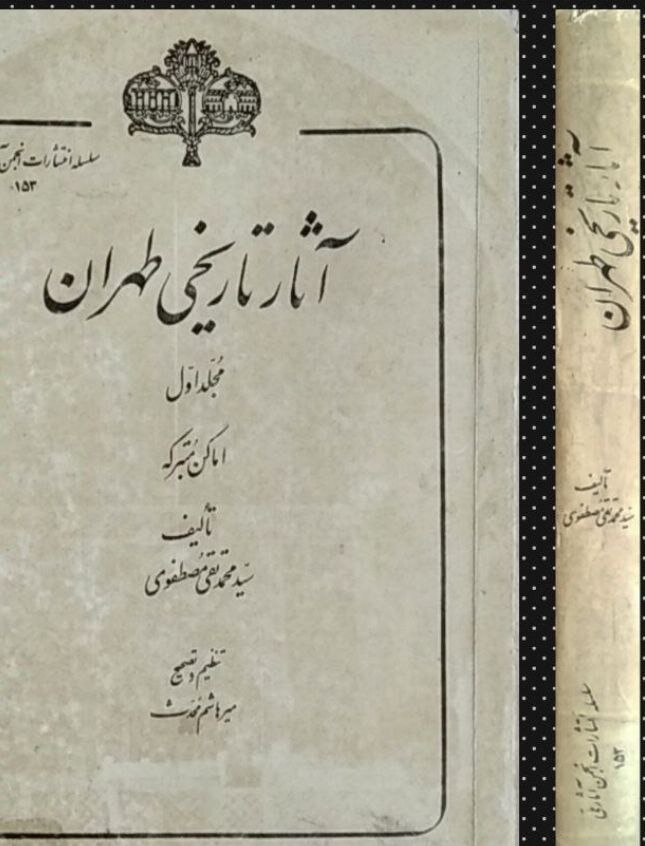 سلسله انتشارات انجمن
۱۵۳
آثار تاریخی طهران
مجلّد اوّل
اماکن مُتبرکه
تألیف
سیّد محمّد تقی مُصطفوی
تنظیم و تصحیح
میرهاشم مُحدّث
آثار تاریخی طهران
تألیف
سیّد محمّد تقی مُصطفوی
سلسله انتشارات انجمن آثار ملی
۱۵۳